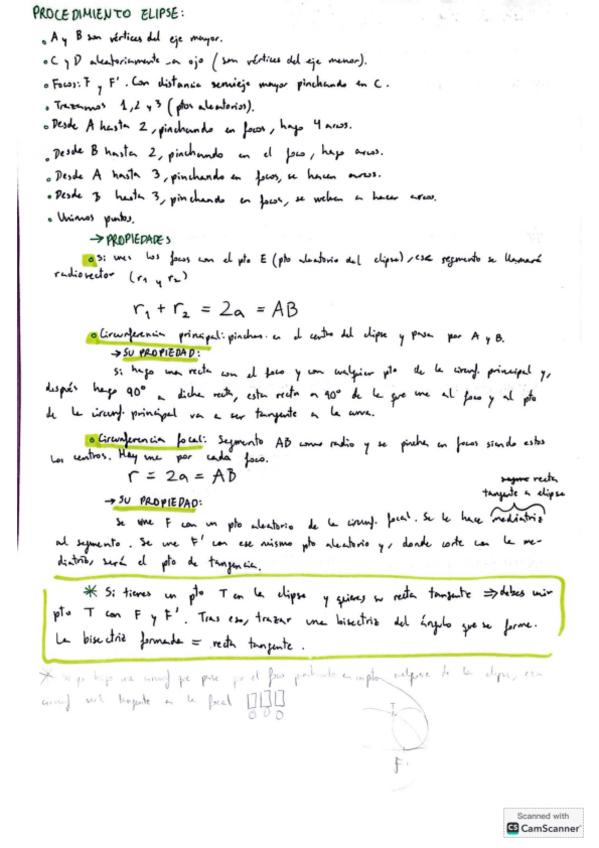 PROCEDIMIENTO ELIPSE:
• A y B son vértices del eje mayor.
• C y D aleatoriamente a ojo (son vértices del eje menor).
• Focos: F y F'. Con distancia semieje mayor pinchando en C.
• Trazamos 1, 2 y 3 (ptos aleatorios).
• Desde A hasta 2, pinchando en focos, hago 4 arcos.
• Desde B hasta 2, pinchando en el foco, hago arcos.
• Desde A hasta 3, pinchando en focos, se hacen arcos.
• Desde B hasta 3, pinchando en focos, se vuelven a hacer arcos.
• Unimos puntos.
→ PROPIEDADES
• Si unes los focos con el pto E (pto aleatorio del elipse), ese segmento se llamará
radiosector (r1 y r2)
r1 + r2 = 2a = AB
• Circunferencia principal: pinchas en el centro del elipse y pasa por A y B.
→ SU PROPIEDAD:
Si hago una recta con el foco y con cualquier pto de la circunf. principal y,
después hago 90° a dicha recta, esta recta a 90° de la que une al foco y al pto
de la circunf. principal va a ser tangente a la curva.
• Circunferencia focal: Segmento AB como radio y se pincha en focos siendo estos
los centros. Hay una por cada foco.
r = 2a = AB
recta
tangente a elipse
→ SU PROPIEDAD:
Se une F con un pto aleatorio de la circunf. focal. Se le hace mediatriz
al segmento. Se une F' con ese mismo pto aleatorio y, donde corte con la me-
diatriz, será el pto de tangencia.
* Si tienes un pto T en la elipse y quieres su recta tangente ⇒ debes unir
pto T con F y F'. Tras eso, trazar una bisectriz del ángulo que se forme.
La bisectriz formada = recta tangente.
* hago una circunf que pase por el foco en de la elipse, esa
circunf será tangente a la focal
T
F
Scanned with
CS CamScanner